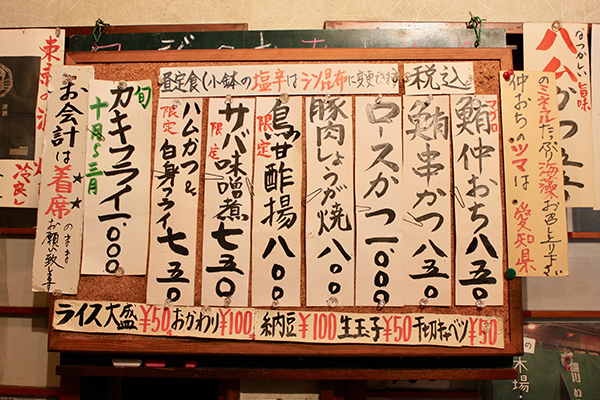 昼定食(小鉢の塩辛はシソ昆布に変更できます
税込
マグロ
鮪仲おち八五〇
鮪串かつ八五〇
ロースかつ一、一〇〇
豚肉しょうが焼八〇〇
限定
鳥甘酢揚八〇〇
限定
サバ味噌煮七五〇
限定
ハムかつ&
白身フライ七五〇
旬
カキフライ一、〇〇〇
十月〜三月
お会計は着席
のまま
お願い致します
ライス大盛¥50
おかわり¥100
納豆¥100
生玉子¥50
千切キャベツ¥50
なつかしい旨味
ハムかつ
仲おちのツマは愛知県
のミネラルたっぷり海藻お召し上り下さい
東京の
冷
良し
の
木場